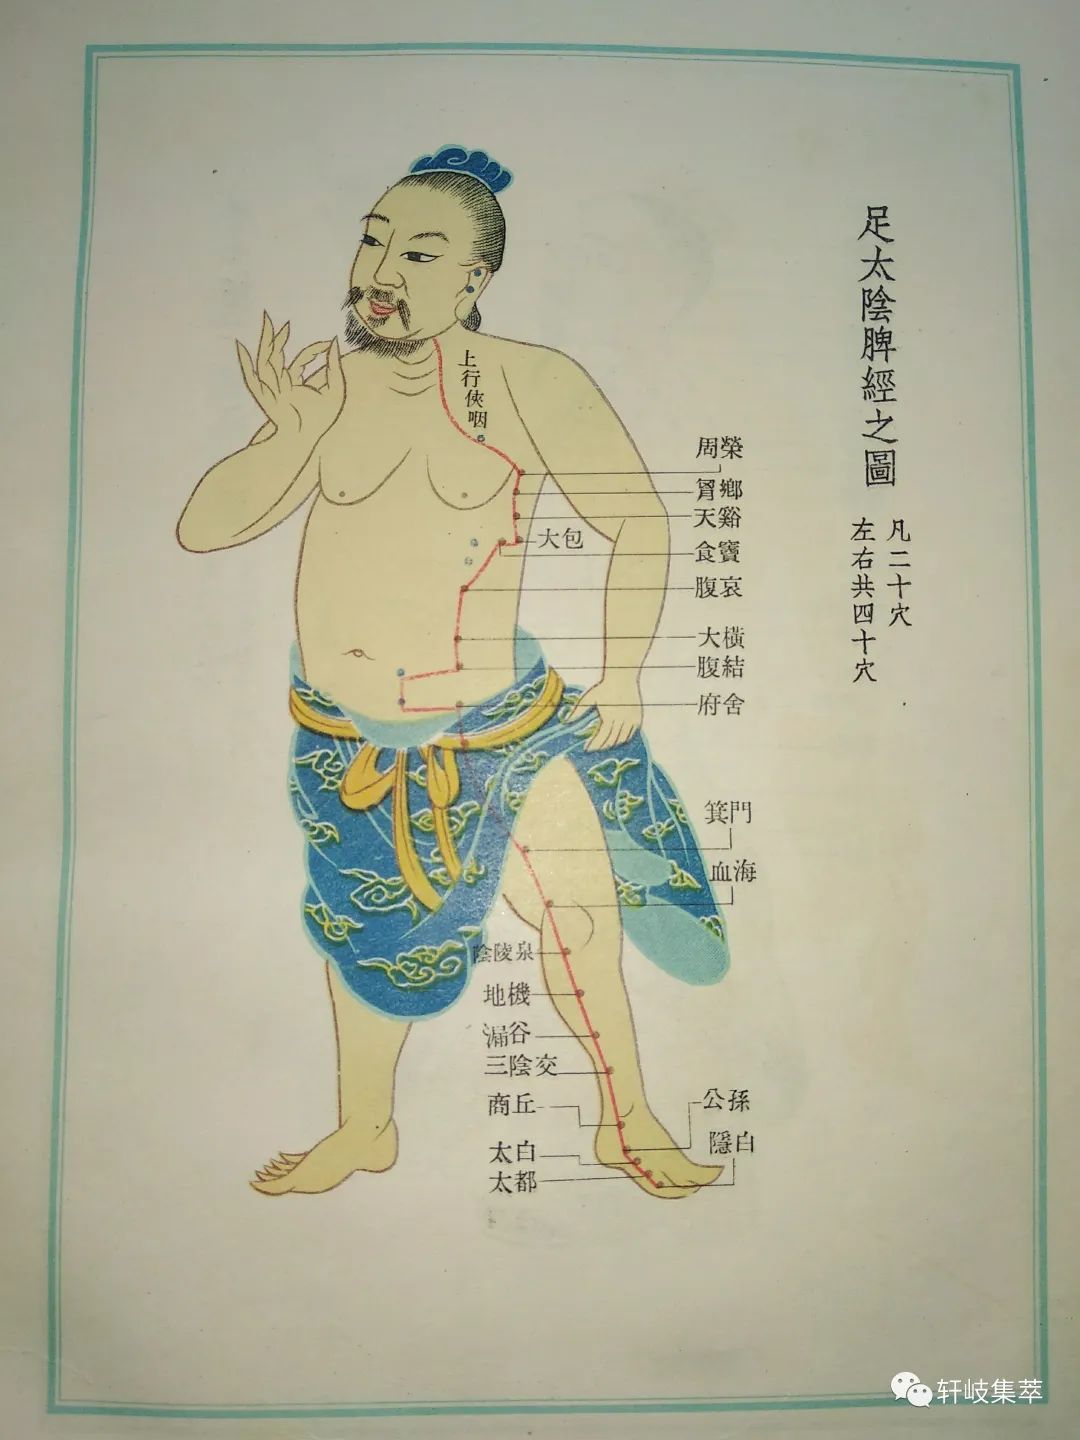 足太陰脾經之圖
凡二十穴
左右共四十穴
上行俠咽
周榮
胷鄉
天谿
大包
食竇
腹哀
大橫
腹結
府舍
箕門
血海
陰陵泉
地機
漏谷
三陰交
商丘
公孫
太白
隱白
太都
轩岐集萃